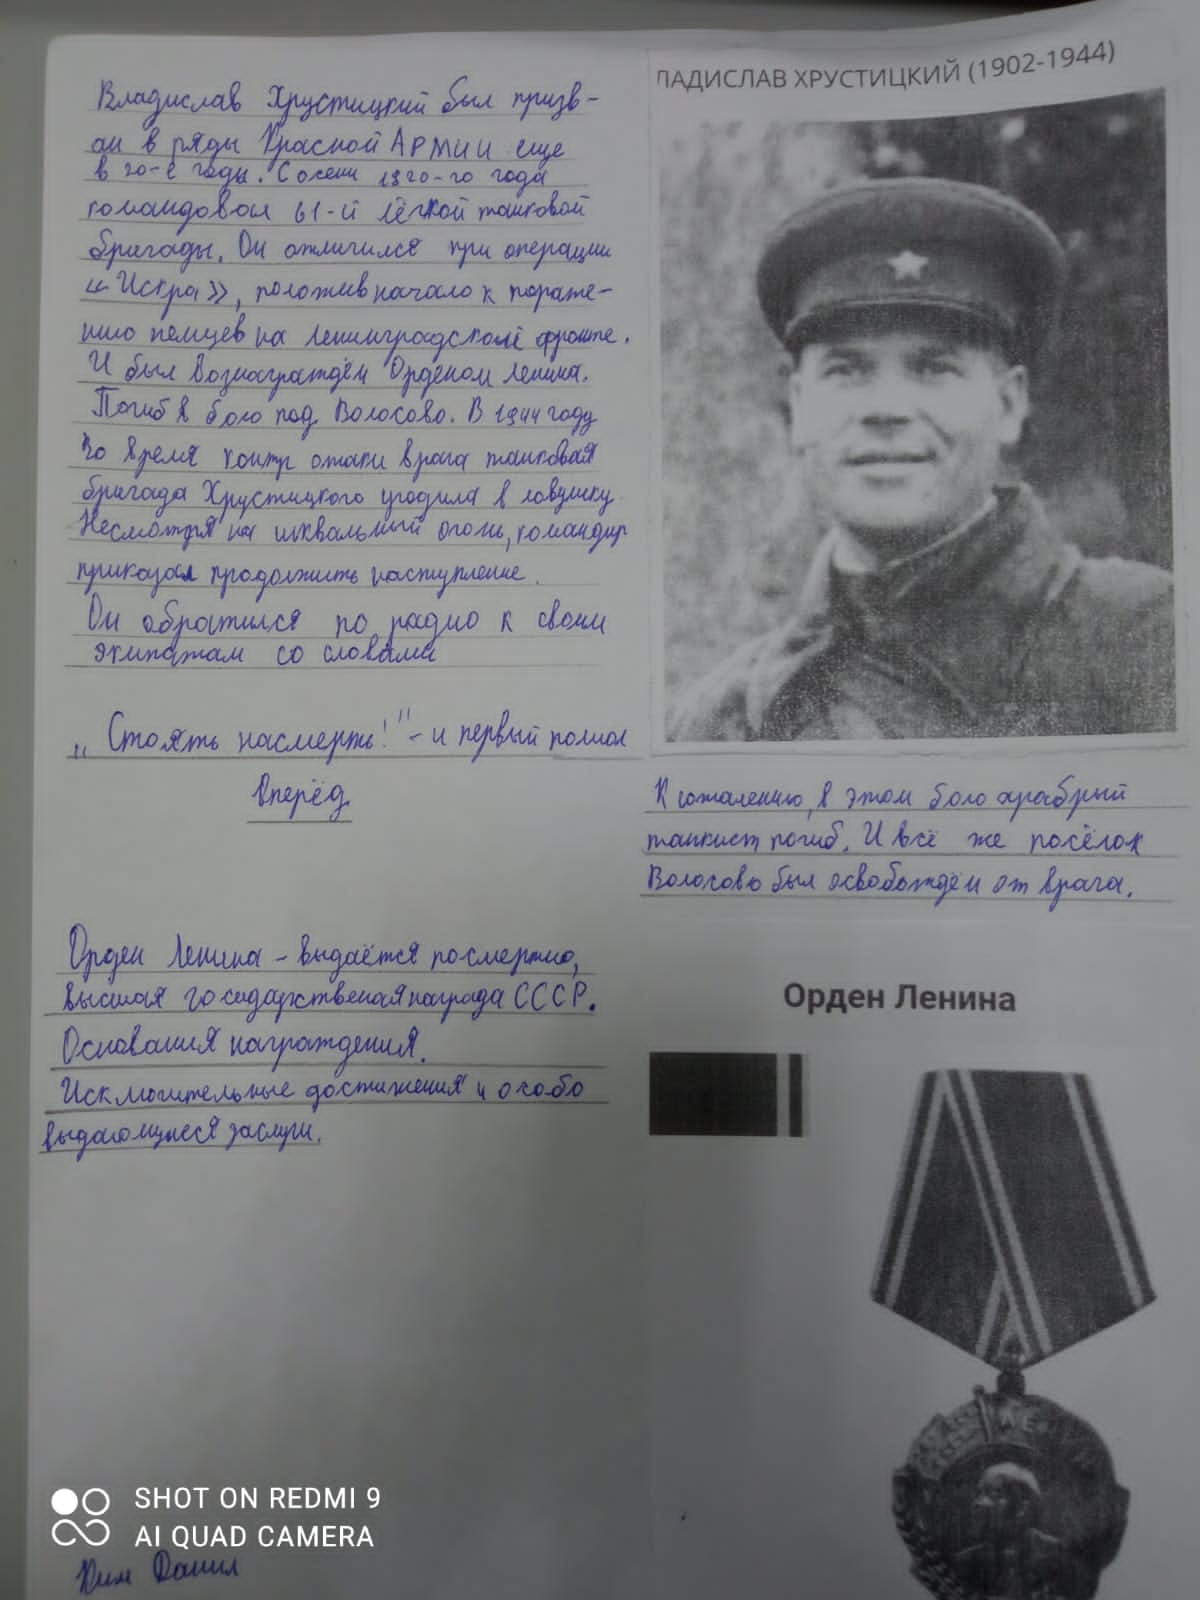 Владислав Хрустицкий был призв-
ан в ряды Красной АРМИИ еще
в 20-е годы. С осени 1920-го года
командовал 61-й лёгкой танковой
бригады. Он отличился при операции
«Искра», положив начало к пораже-
нию немцев на Ленинградской фронте.
И был вознаграждён Орденом Ленина.
Погиб в бою под Волосово. В 1944 году
Во время контр атаки врага танковая
бригада Хрустицкого угодила в ловушку.
Несмотря на шквальный огонь, командир
приказал продолжить наступление.
Он обратился по радио к своим
экипажам со словами
„Стоять насмерть!" - и первый пошёл
вперёд
ЛАДИСЛАВ ХРУСТИЦКИЙ (1902-1944)
К сожалению, в этом бою храбрый
танкист погиб. И всё же посёлок
Волосово был освобождён от врага.
Орден Ленина - выдаётся посмертно,
высшая государственая награда СССР.
Основания награждения.
Исключительные достижения и особо
выдающиеся заслуги.
Орден Ленина
SHOT ON REDMI 9
AI QUAD CAMERA
Ким Данил